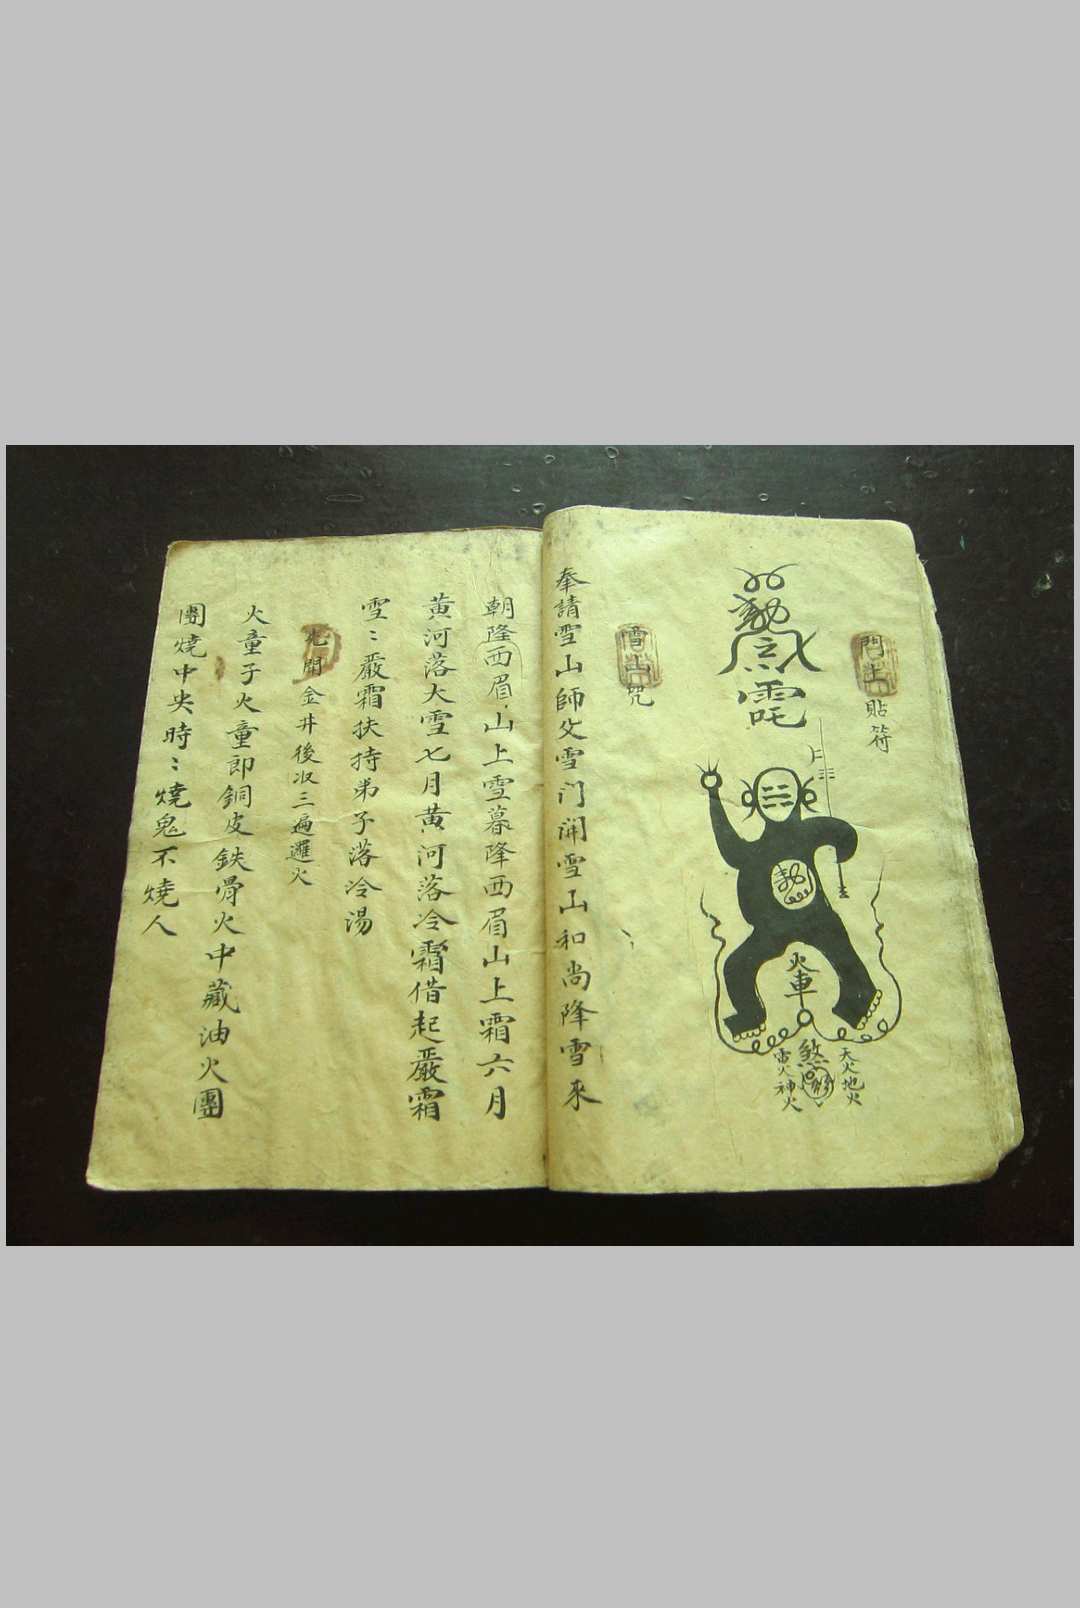 門上貼符
勅
火車
煞
天火地火
雷火神火
雪山咒
奉請雪山師父雪门開雪山和尚降雪來
朝隆西眉山上雪暮降西眉山上霜六月
黃河落大雪七月黃河落冷霜借起嚴霜
雪:嚴霜扶持弟子落冷湯
先開金井後收三遍邏火
火童子火童郎銅皮鉄骨火中藏油火團
團燒中央時:燒鬼不燒人